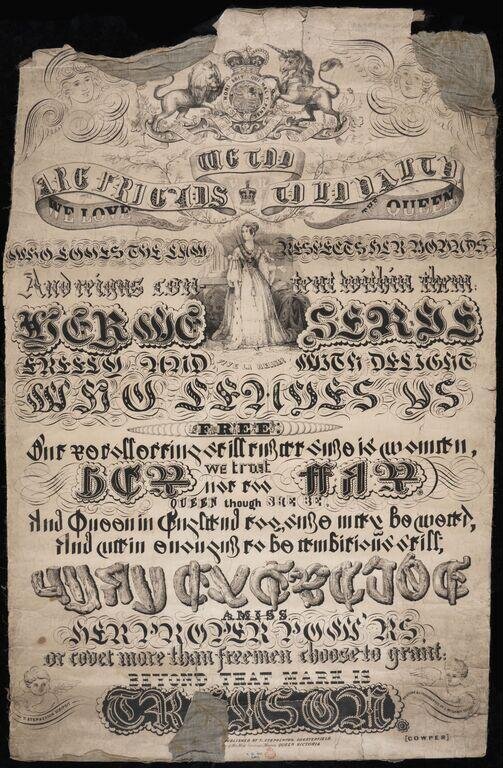 WE TOO
ARE FRIENDS TO LOYALTY
WE LOVE THE QUEEN
WHO LOVES THE LAW RESPECTS HER BOUNDS
And reigns con- tent within them:
HER WE SERVE
FREELY AND WITH DELIGHT
WHO LEAVES US
FREE:
But recollecting still that she is woman,
HER we trust not too FAR
QUEEN though SHE BE,
And Queen in England too, she may be weak,
And vain enough to be ambitious still;
MAY EXERCISE
AMISS
HER PROPER POW'RS,
or covet more than freemen choose to grant:
BEYOND THAT MARK IS
TREASON.
[COWPER]
PUBLISHED BY T. STEPHENSON CHESTERFIELD
QUEEN VICTORIA